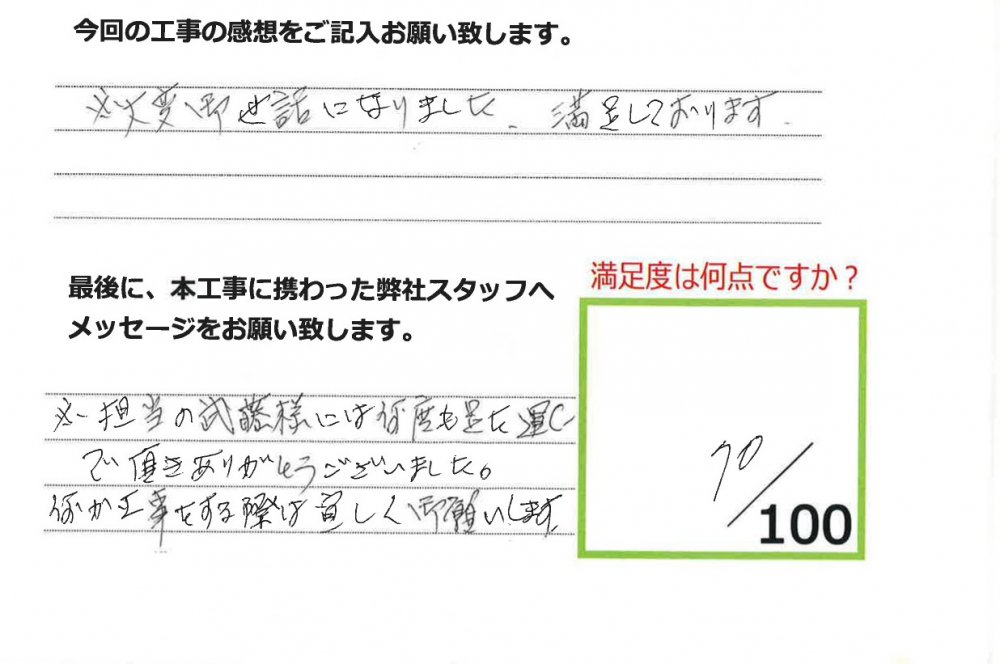 今回の工事の感想をご記入お願い致します。
※大変御世話になりました、満足しております.
最後に、本工事に携わった弊社スタッフへ
メッセージをお願い致します。
※担当の武藤様には何度も足を運ん
で頂きありがとうございました。
何か工事をする際は宜しく御願いします.
満足度は何点ですか？
90/100